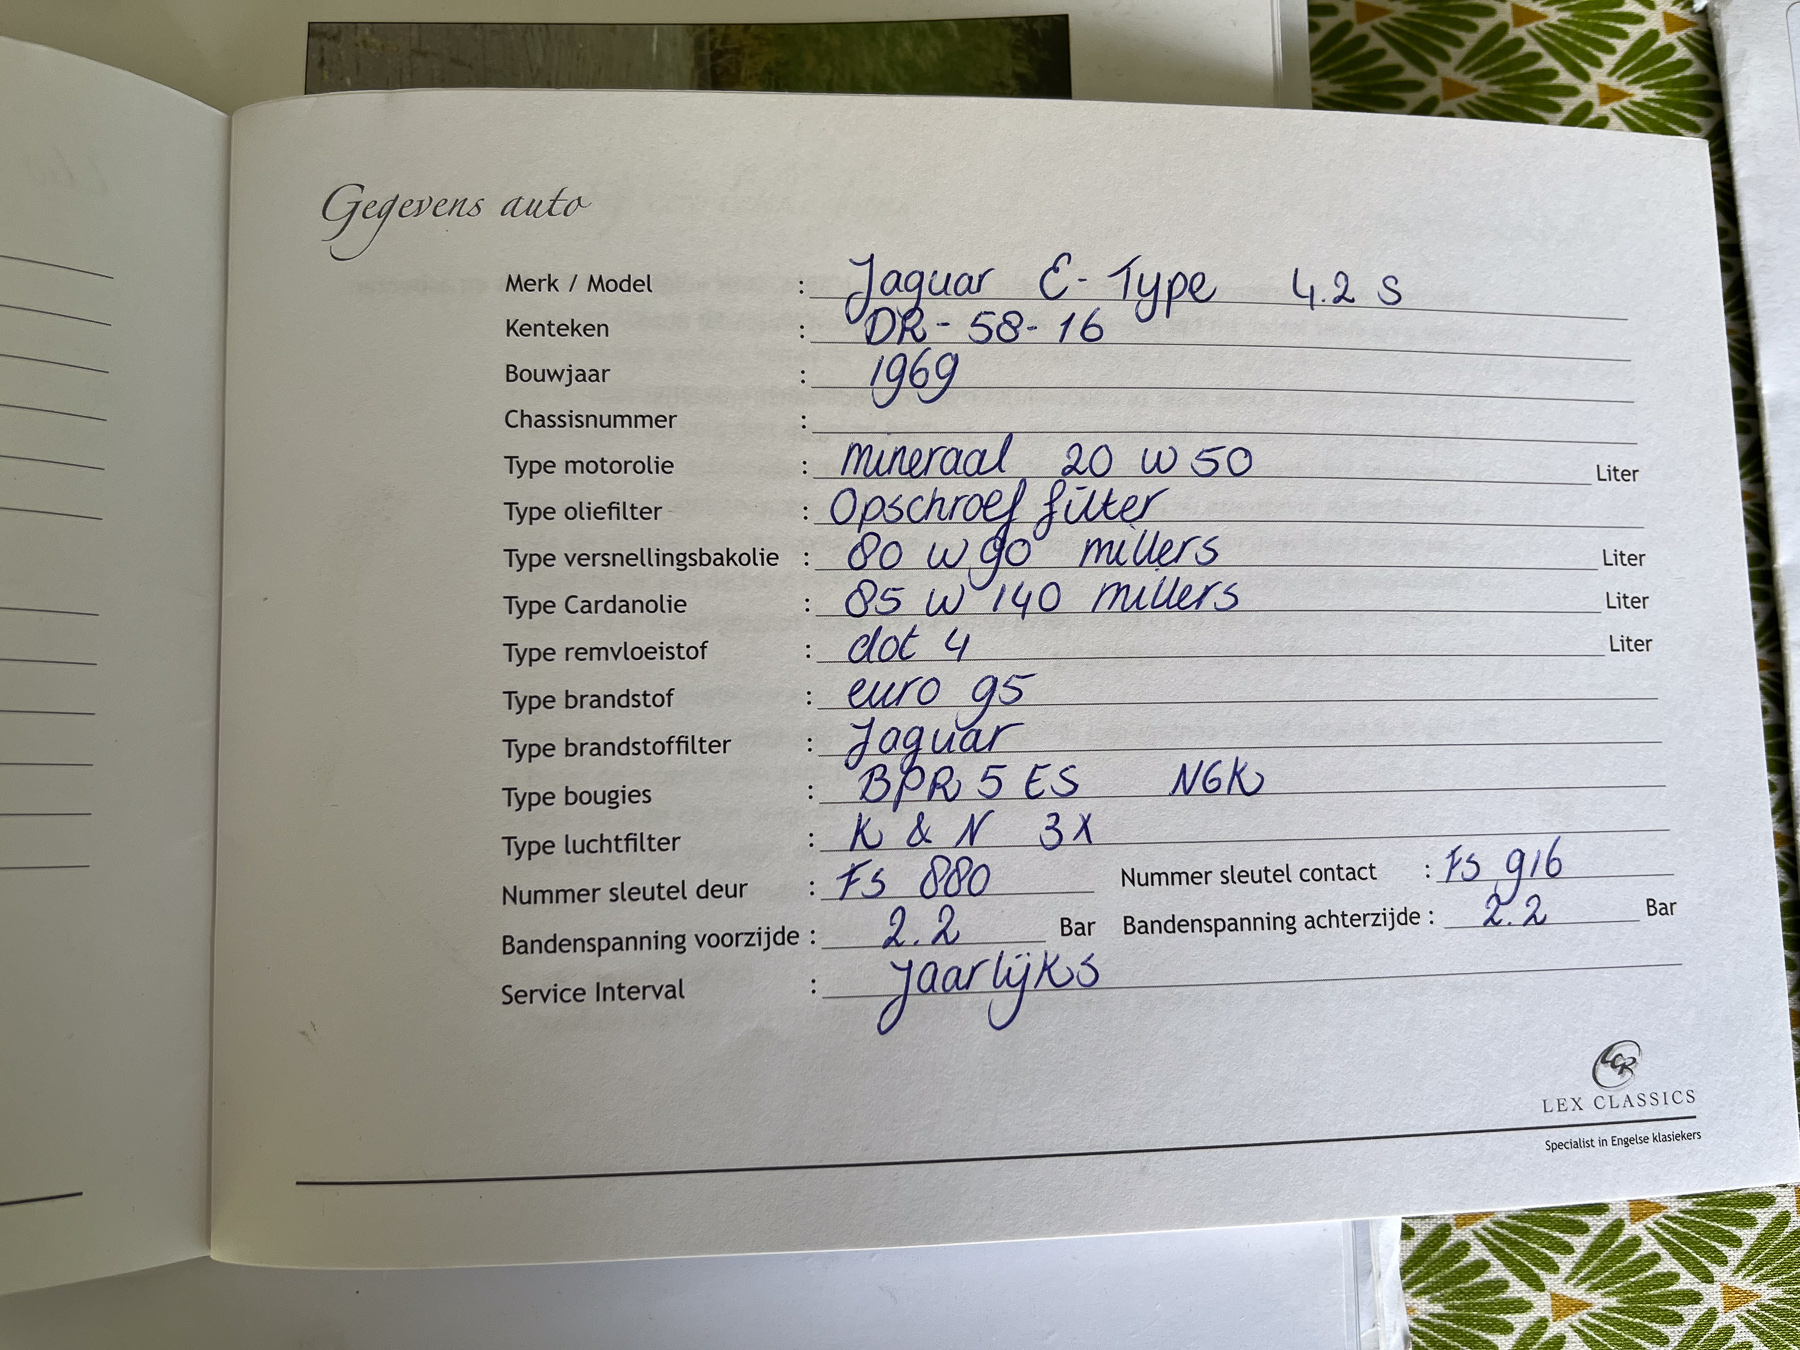 Gegevens auto
Merk / Model : Jaguar E-Type 4.2 S
Kenteken : DR-58-16
Bouwjaar : 1969
Chassisnummer :
Type motorolie : mineraal 20 W 50 Liter
Type oliefilter : Opschroef filter
Type versnellingsbakolie : 80 W 90 millers Liter
Type Cardanolie : 85 W 140 millers Liter
Type remvloeistof : dot 4 Liter
Type brandstof : euro 95
Type brandstoffilter : Jaguar
Type bougies : BPR 5 ES NGK
Type luchtfilter : K & N 3X
Nummer sleutel deur : FS 880 Nummer sleutel contact : FS 916
Bandenspanning voorzijde : 2.2 Bar Bandenspanning achterzijde : 2.2 Bar
Service Interval : Jaarlijks
LCR
LEX CLASSICS
Specialist in Engelse klasiekers